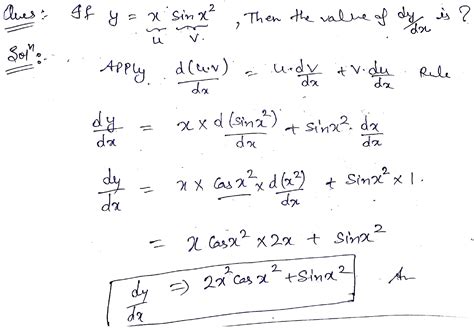 Ques :- If y = x sin x², Then the value of dy/dx is ?
u v.
Solⁿ :- Apply d(u.v)/dx = u.dv/dx + v.du/dx Rule
dy/dx = x × d(sinx²)/dx + sinx². dx/dx
dy/dx = x × cosx² × d(x²)/dx + sinx² × 1.
= x cosx² × 2x + sinx²
dy/dx ⇒ 2x² cosx² + sinx² An